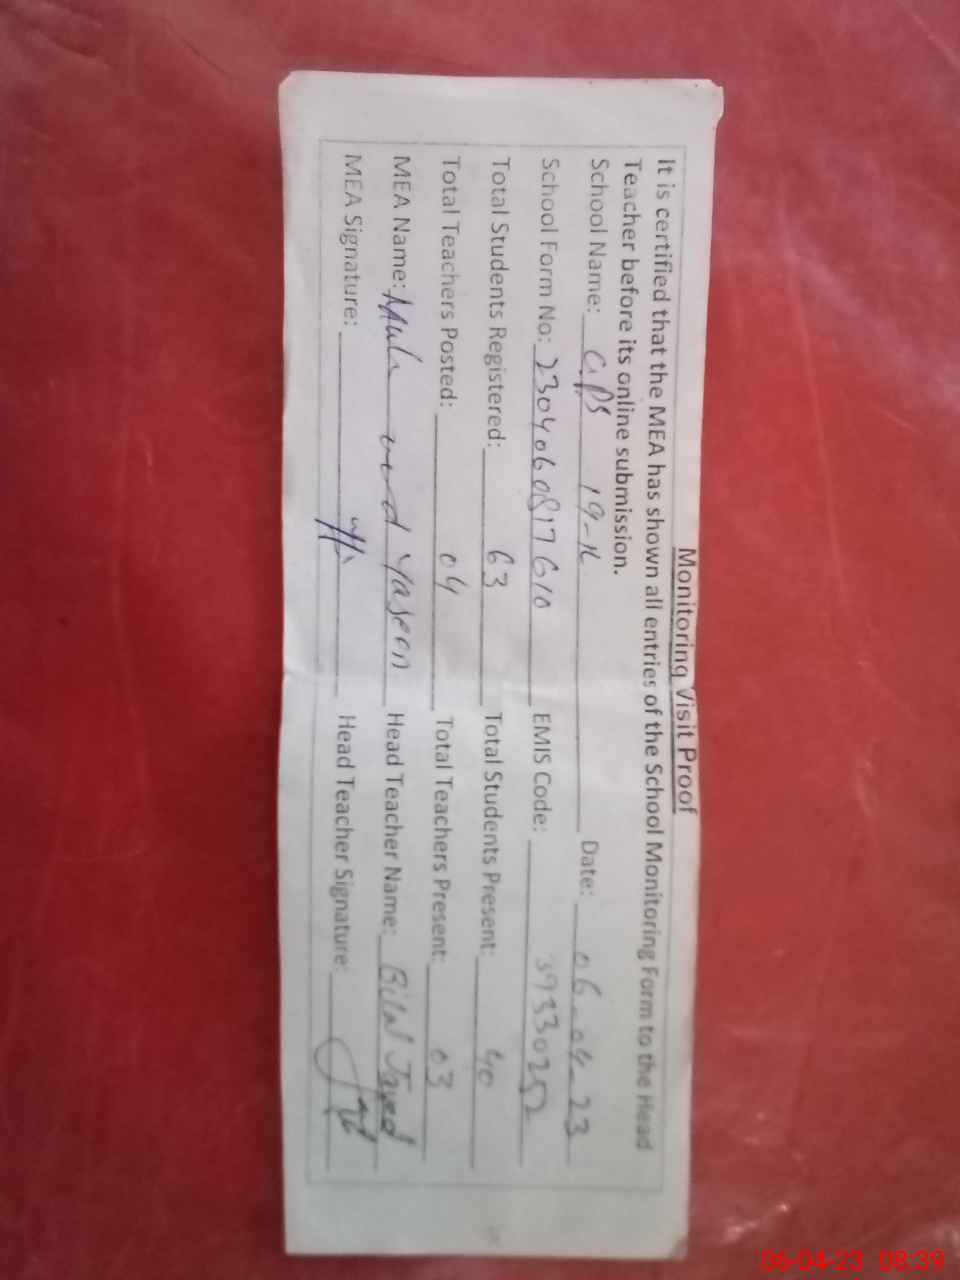 Monitoring Visit Proof
It is certified that the MEA has shown all entries of the School Monitoring Form to the Head
Teacher before its online submission.
School Name: GPS 19-R Date: 06-04-23
School Form No: 2304060817610 EMIS Code: 39330252
Total Students Registered: 63 Total Students Present: 40
Total Teachers Posted: 04 Total Teachers Present: 03
MEA Name: Yaseen Head Teacher Name: Bilal Javed
MEA Signature: Head Teacher Signature:
06-04-23 08:39